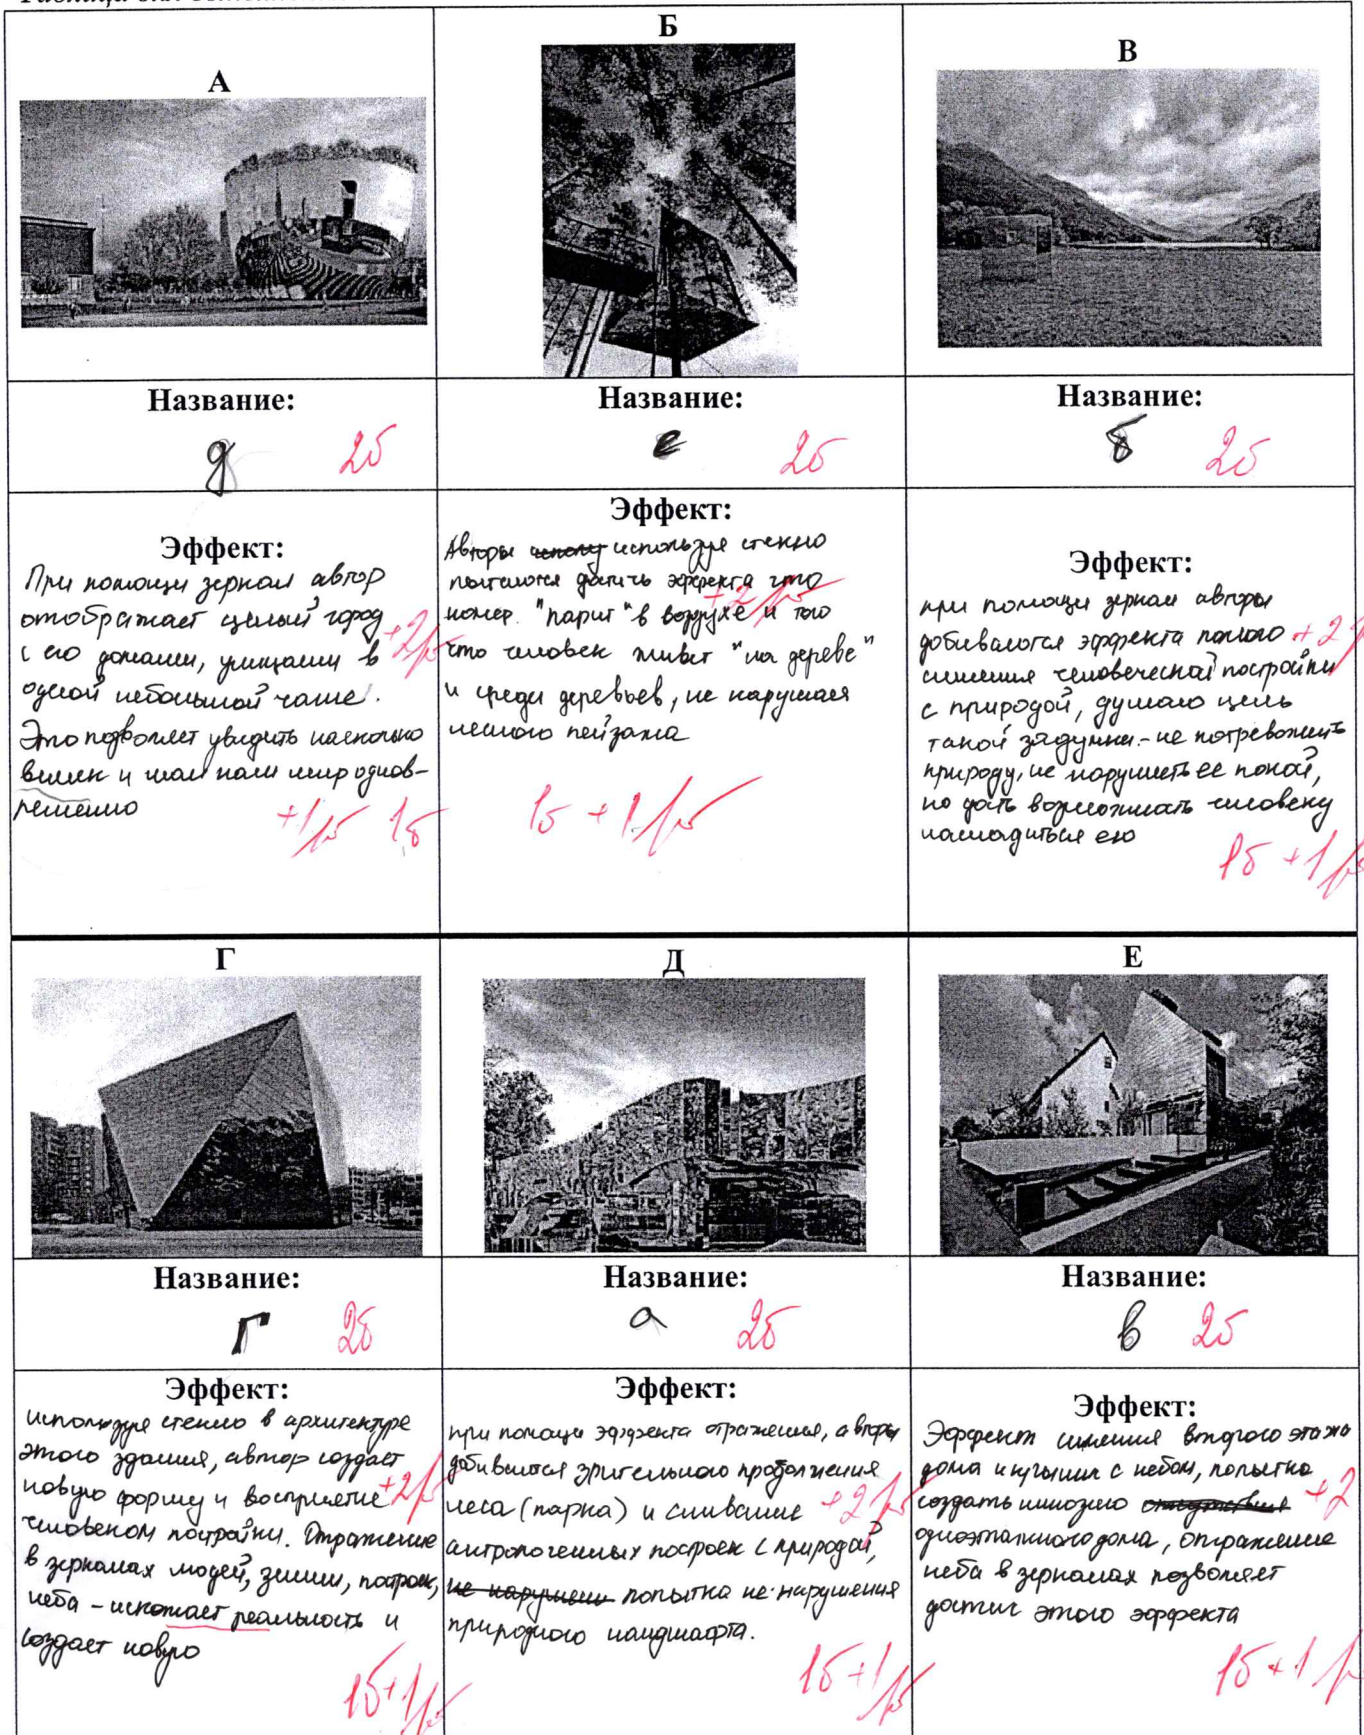 А
Б
В
Название:
Название:
Название:
д 2б
е 2б
б 2б
Эффект:
При помощи зеркал автор
отображает целый город
с его домами, улицами в +2
одной небольшой чаше.
Это позволяет увидеть насколько
велик и мал наш мир однов-
ременно
+1 1б
Эффект:
Авторы используя стекло
пытаются достичь эффекта что
номер "парит" в воздухе и того +2
что человек живет "на дереве"
и среди деревьев, не нарушая
лесного пейзажа
1б + 1
Эффект:
при помощи зеркал авторы
добиваются эффекта полного +2
слияния человеческой постройки
с природой, думаю цель
такой задумки - не потревожить
природу, не нарушить ее покой,
но дать возможность человеку
насладиться ею
1б + 1
Г
Д
Е
Название:
Название:
Название:
г 2б
а 2б
в 2б
Эффект:
используя стекло в архитектуре
этого здания, автор создает
новую форму и восприятие +2
человеком постройки. Отражение
в зеркалах людей, земли, построек,
неба - искажает реальность и
создает новую
1б + 1
Эффект:
при помощи эффекта отражения, авторы
добиваются зрительного продолжения
леса (парка) и слияние +2
антропогенных построек с природой,
не нарушен попытка не нарушения
природного ландшафта.
1б + 1
Эффект:
Эффект слияния второго этажа
дома и крыши с небом, попытка
создать иллюзию +2
одноэтажного дома, отражение
неба в зеркалах позволяет
достич этого эффекта
1б + 1